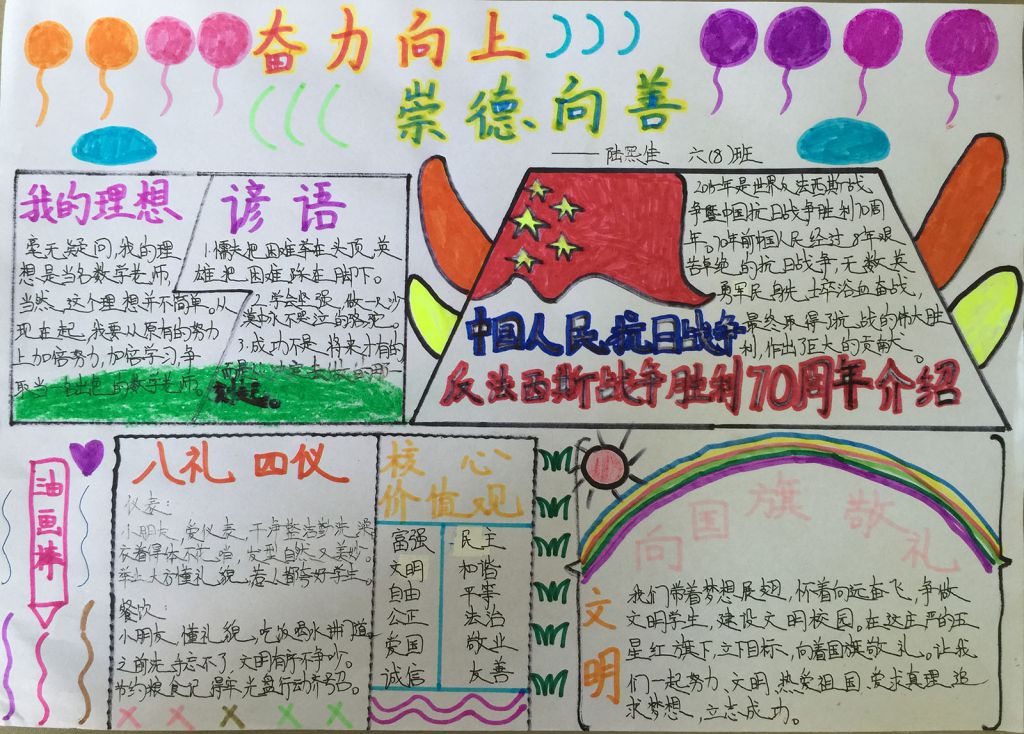 奋力向上
崇德向善
——陆熙佳 六(8)班
我的理想
毫无疑问,我的理
想是当名数学老师,
当然,这个理想并不简单。从
现在起,我要从原有的努力
上加倍努力,加倍学习,争
取当一名出色的数学老师。
谚语
1.懦夫把困难举在头顶,英
雄把困难踩在脚下。
2.学会坚强,做一只沙
漠中永不哭泣的骆驼。
3.成功不是将来才有的
2015年是世界反法西斯战
争暨中国抗日战争胜利70周
年。70年前中国人民经过8年艰
苦卓绝的抗日战争,无数英
勇军民身先士卒浴血奋战,
最终取得了抗战的伟大胜
利,作出了巨大的贡献。
中国人民抗日战争
反法西斯战争胜利70周年介绍
油画棒
八礼四仪
仪表:
小朋友,爱仪表,干净整洁勤洗澡
衣着得体不
发型自然又美妙。
举止大方懂礼貌,惹人都夸好学生。
餐饮:
小朋友,懂礼貌,吃饭喝水排
之前洗手忘不了,文明有序不争吵。
节约粮食记得牢,光盘行动齐号召。
核心
价值观
富强 民主
文明 和谐
自由 平等
公正 法治
爱国 敬业
诚信 友善
向国旗敬礼
文明
我们带着梦想展翅,怀着向远奋飞,争做
文明学生,建设文明校园。在这庄严的五
星红旗下,立下目标,向着国旗敬礼。让我
们一起努力、文明、热爱祖国、爱求真理、追
求梦想,立志成功。